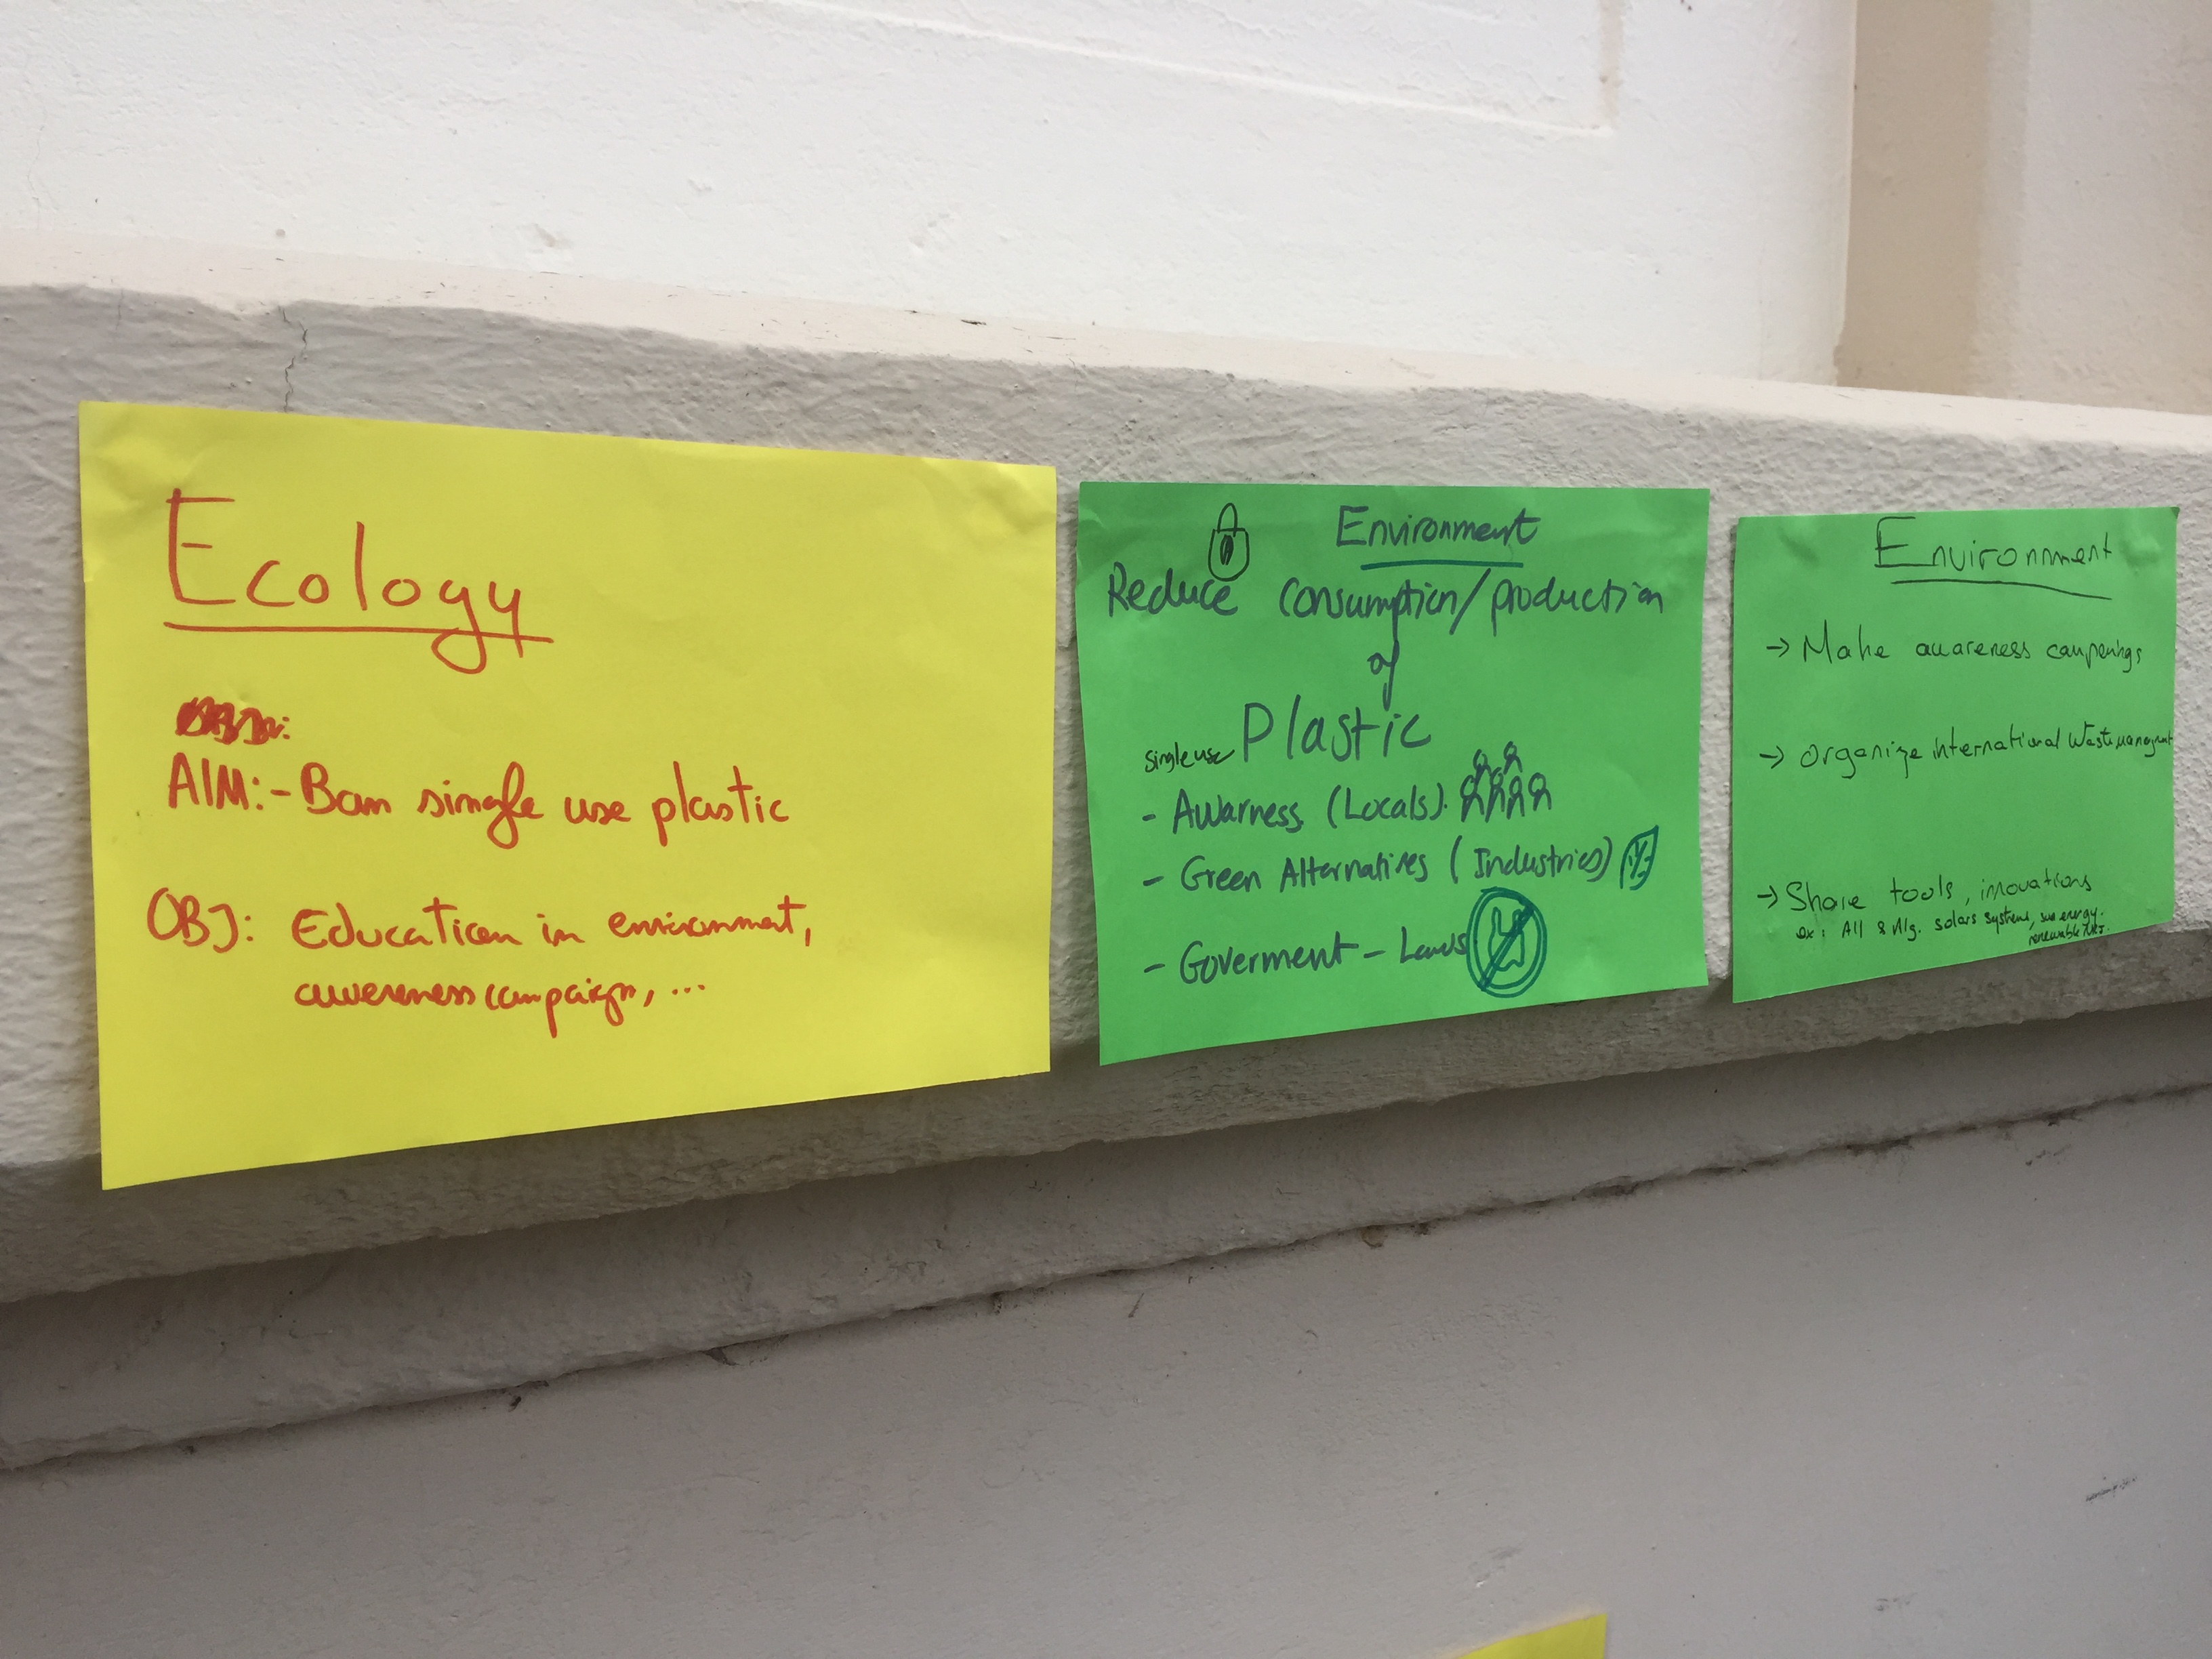 Ecology
AIM:- Ban single use plastic
OBJ: Education in environment,
awereness campaign, ...
Environment
Reduce consumption/production
of
single use Plastic
- Awarness (Locals).
- Green Alternatives (Industries)
- Goverment - Laws
Environment
→ Make awareness campenings
→ organize international Waste managment
→ Share tools, innovations
ex: All & Alg. solars systems, sun energy.
renewable